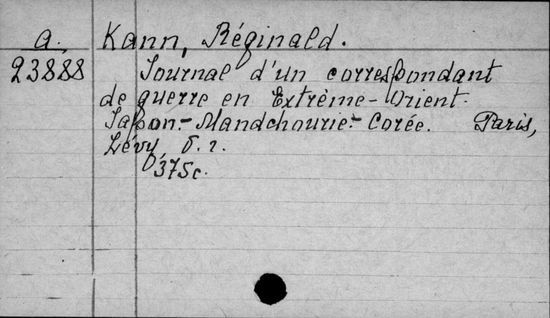 a. Kann, Réginald.
23888 Journal d'un correspondant
de guerre en Extrème-Orient.
Japon.-Mandchourie.-Corée. Paris,
Lévy, б. г.
375c.